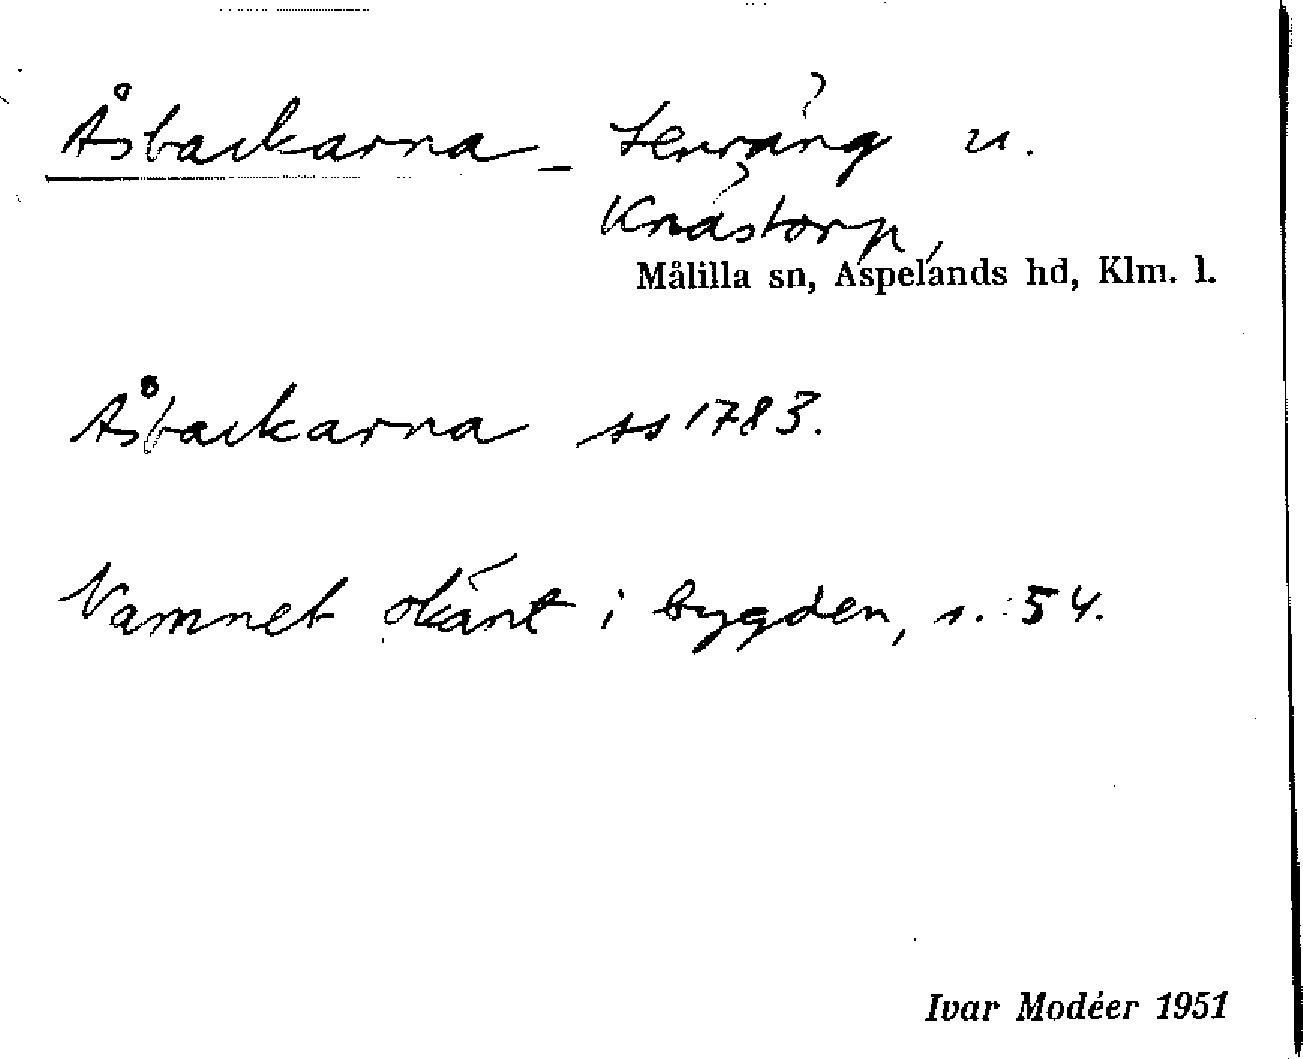 Åsbackarna - tenräng u.
Knästorp,
Målilla sn, Aspelands hd, Klm. l.
Åsbackarna ss 1783.
Namnet okänt i bygden, s. 54.
Ivar Modéer 1951